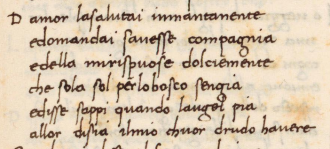 D amor lasalutai inmantanente
edomandai savesse compagnia
edella mirispuose dolciemente
che sola sol perlobosco sengia
edisse sappi quando laugel pia
allor disia ilmio chuor drudo havere